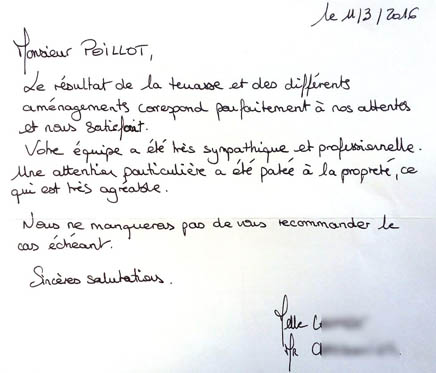 le 11/3/2016
Monsieur POILLOT,
Le résultat de la terrasse et des différents
aménagements correspond parfaitement à nos attentes
et nous satisfait.
Votre équipe a été très sympathique et professionnelle.
Une attention particulière a été portée à la propreté, ce
qui est très agréable.
Nous ne manquerons pas de vous recommander le
cas échéant.
Sincères salutations.
Melle
Mr